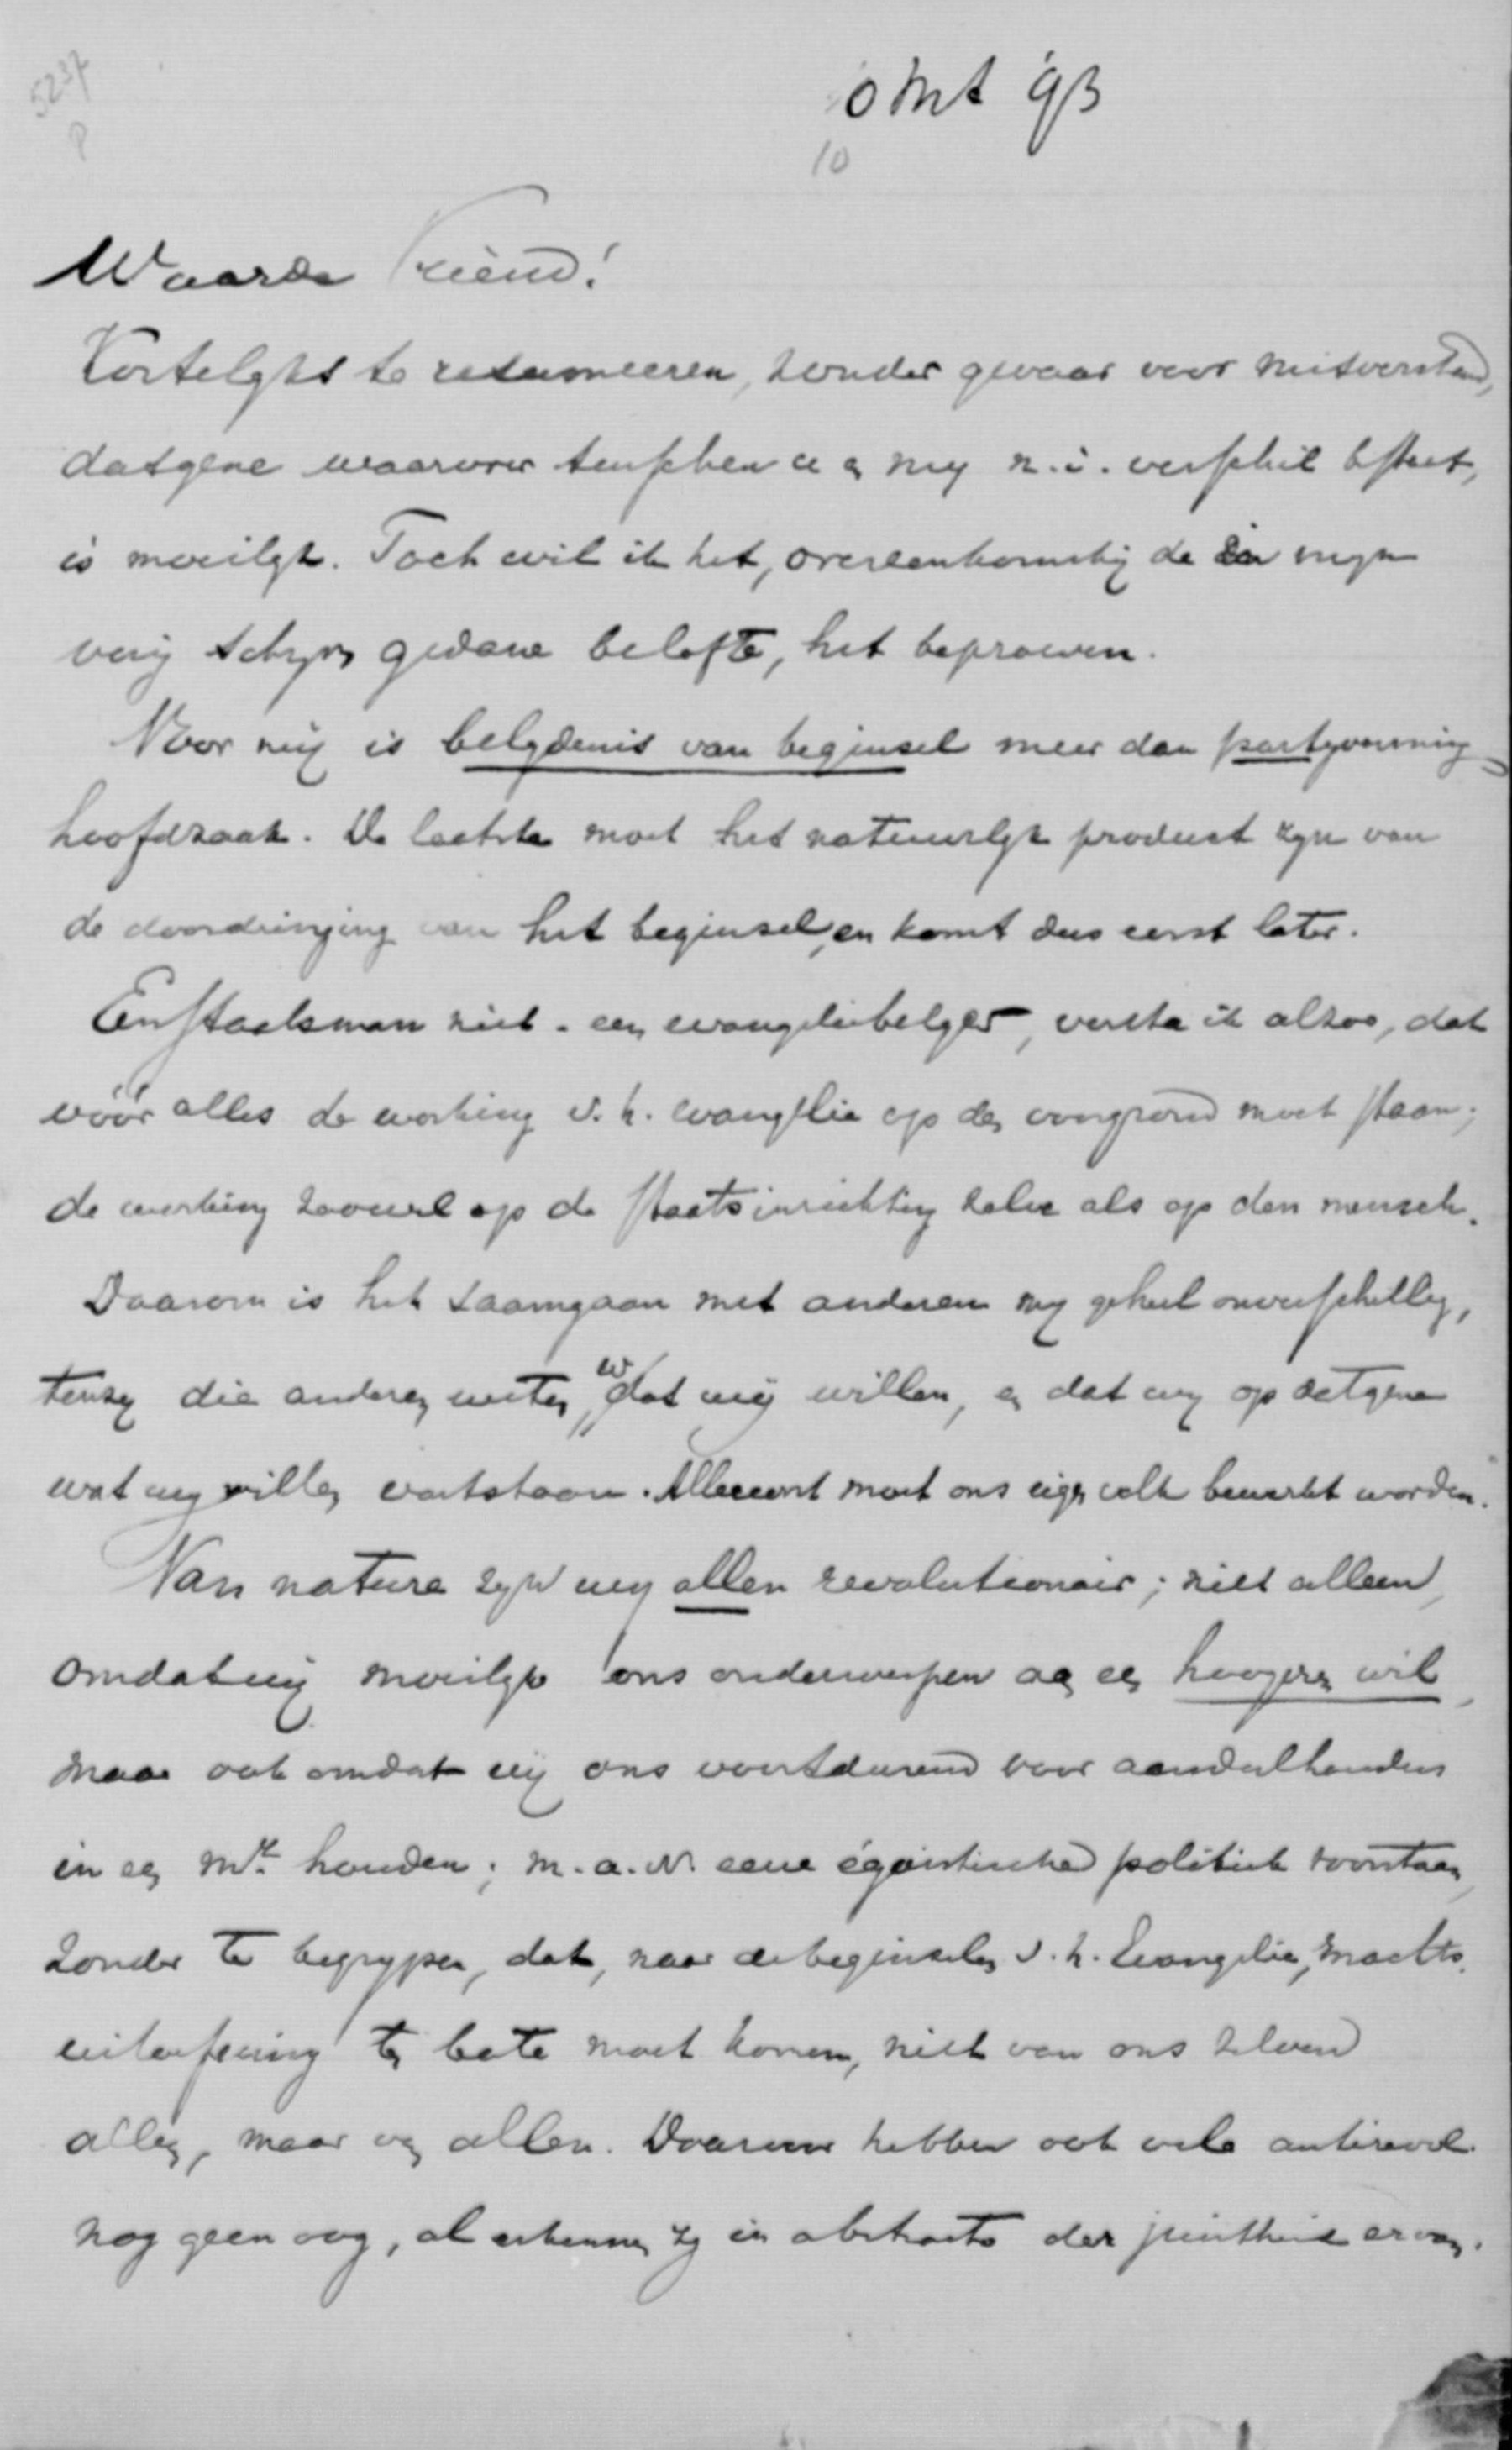 5237
P
0 Mrt '93
10
Waarde Vriend!
Kortelyks te resumeeren, zonder gevaar voor misverstand,
datgene waarover tusschen u en my n.i. verschil bestaat,
is moeilyk. Toch wil ik het, overeenkomstig de in myn
vorig schryven gedane belofte, het beproeven.
Voor my is belydenis van beginsel meer dan partyvorming
hoofdzaak. De laatste moet het natuurlyk product zyn van
de doordringing van het beginsel, en komt dus eerst later.
Een staatsman niet - een evangeliebelyder, versta ik alzoo, dat
vóór alles de working v.h. evangelie op den voorgrond moet staan;
de working zoowel op de staatsinrichting zelve als op den mensch.
Daarom is het saamgaan met anderen my geheel onverschillig,
tenzy die anderen weten, wat wy willen, en dat wy op datgene
wat wy willen vaststaan. Allereerst moet ons eigen volk bewerkt worden.
Van nature zyn wy allen revolutionair; niet alleen,
omdat wy moeilyk ons onderwerpen aan een hoogeren wil,
maar ook omdat wy ons voortdurend voor aandeelhouders
in een My. houden; m.a.w. eene égoistische politiek voorstaan,
zonder te begrypen, dat, naar de beginselen v.h. Evangelie, machts-
uitoefening ten bate moet komen, niet van ons zelven
alleen, maar van allen. Daarvoor hebben ook vele antirevol.
nog geen oog, al erkennen zy in abstracto der juistheid ervan.